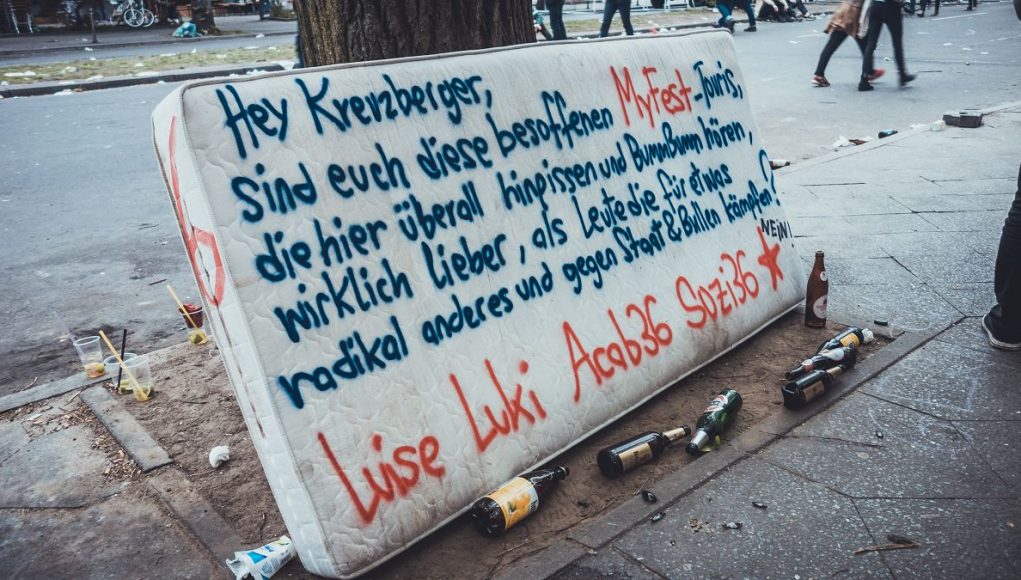 Hey Kreuzberger,
sind euch diese besoffenen MyFest-Touris,
die hier überall hinpissen und BummBumm hören,
wirklich lieber, als Leute die für etwas
radikal anderes und gegen Staat & Bullen kämpfen?
NEIN!
Luise Luki Acab36 Sozi36